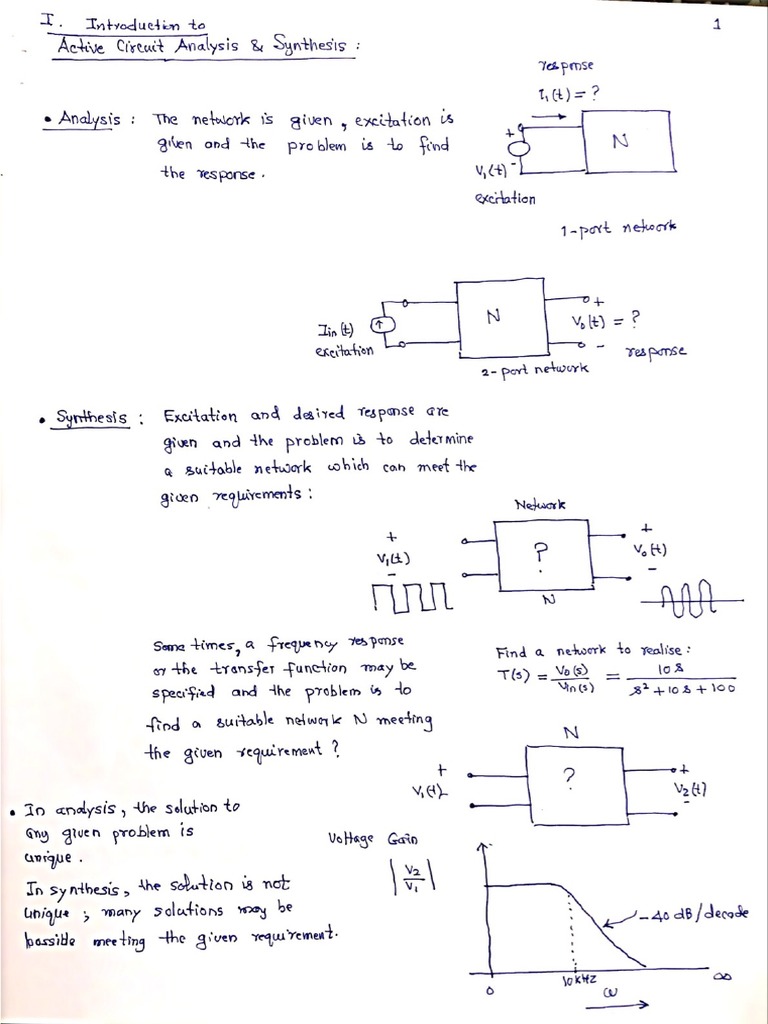 1
I. Introduction to
Active Circuit Analysis & Synthesis :
• Analysis : The network is given, excitation is
given and the problem is to find
the response.
response
I₁(t) = ?
+
N
V₁(t) -
excitation
1-port network
Iin(t)
excitation
N
+
V₀(t) = ?
-
response
2-port network
• Synthesis : Excitation and desired response are
given and the problem is to determine
a suitable network which can meet the
given requirements :
Network
+
V₁(t)
-
?
N
+
V₀(t)
-
Some times, a frequency response
or the transfer function may be
specified and the problem is to
find a suitable network N meeting
the given requirement ?
Find a network to realise :
T(s) = V₀(s)/Vin(s) = 10s/(s² + 10s + 100)
N
+
V₁(t)
-
?
+
V₂(t)
-
• In analysis, the solution to
any given problem is
unique.
In synthesis, the solution is not
unique ; many solutions may be
possible meeting the given requirement.
Voltage Gain
|V₂/V₁|
-40 dB/decade
0
10kHz
∞
ω